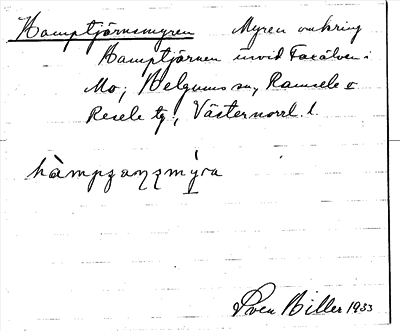 Kamptjärnsmyren Myren omkring
Kamptjärnen invid Faxälven i
Mo, Helgums sn, Ramsele o
Resele tg, Västernorrl. l.
hàmpʒaŋʒmýra
Sven Biller 1933